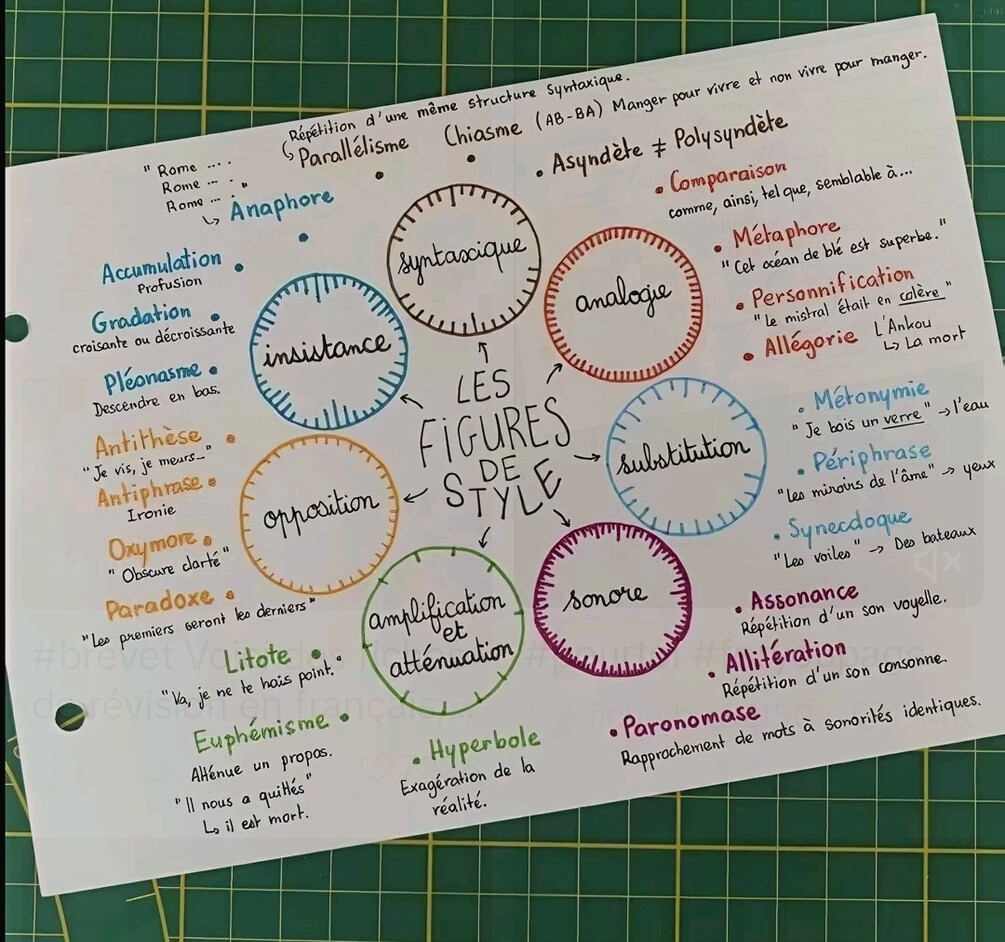 Répétition d'une même structure syntaxique.
↳ Parallélisme
Chiasme (AB-BA) Manger pour vivre et non vivre pour manger.
Asyndète ≠ Polysyndète
"Rome ....
Rome ... .
Rome ... "
↳ Anaphore
Accumulation
Profusion
Gradation
croisante ou décroissante
Pléonasme
Descendre en bas.
insistance
syntaxique
analogie
Comparaison
comme, ainsi, tel que, semblable à...
Métaphore
"Cet océan de blé est superbe."
Personnification
"le mistral était en colère"
Allégorie L'Ankou
↳ La mort
LES
FIGURES
DE
STYLE
substitution
Métonymie
"Je bois un verre" → l'eau
Périphrase
"les miroirs de l'âme" → yeux
Synecdoque
"Les voiles" → Des bateaux
opposition
Antithèse
"Je vis, je meurs..."
Antiphrase
Ironie
Oxymore
"Obscure clarté"
Paradoxe
"Les premiers seront les derniers"
amplification
et
atténuation
Litote
"Va, je ne te hais point."
Euphémisme
Atténue un propos.
"Il nous a quittés"
↳ il est mort.
Hyperbole
Exagération de la
réalité.
sonore
Assonance
Répétition d'un son voyelle.
Allitération
Répétition d'un son consonne.
Paronomase
Rapprochement de mots à sonorités identiques.
#brevet
de révision en français